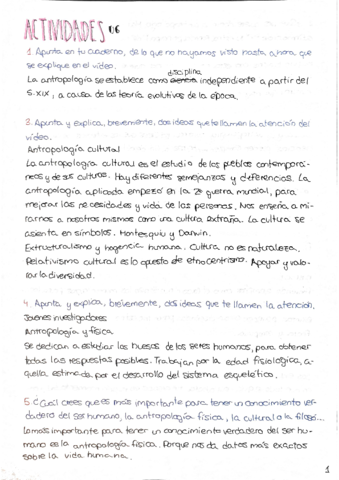 ACTIVIDADES U6
1. Apunta en tu cuaderno, de lo que no hayamos visto hasta ahora que
se explique en el vídeo.
disciplina
La antropología se establece como ciencia independiente a partir del
S.XIX, a causa de las teoría evolutivas de la época.
3. Apunta y explica, brevemente, dos ideas que te llamen la atención del
vídeo.
Antropología cultural
La antropología cultural es el estudio de los pueblos contemporá-
neos y de sus culturas. Hay diferentes semejanzas y diferencias. La
antropología aplicada empezó en la 2ª guerra mundial, para
mejorar las necesidades y vida de las personas. Nos enseña a mi-
rarnos a nosotros mismos como una cultura extraña. La cultura se
asienta en símbolos. Montesquiu y Darwin.
Extructuralismo y hogencia humana. Cultura no es naturaleza.
Relativismo cultural es lo opuesto de etnocentrismo. Apoyar y valo-
rar la diversidad.
4. Apunta y explica, brevemente, dos ideas que te llamen la atención.
Jóvenes investigadores
Antropología física
Se dedican a estudiar los huesos de los seres humanos, para obtener
todas las respuestas posibles. Trabajan por la edad fisiológica, a-
quella estimada por el desarrollo del sistema esquelético.
5. ¿Cuál crees que es más importante para tener un conocimiento ver-
dadero del ser humano, la antropología física, la cultural o la filosó...
Lo más importante para tener un conocimiento verdadero del ser hu-
mano es la antropología física. Porque nos da datos más exactos
sobre la vida humana.
1